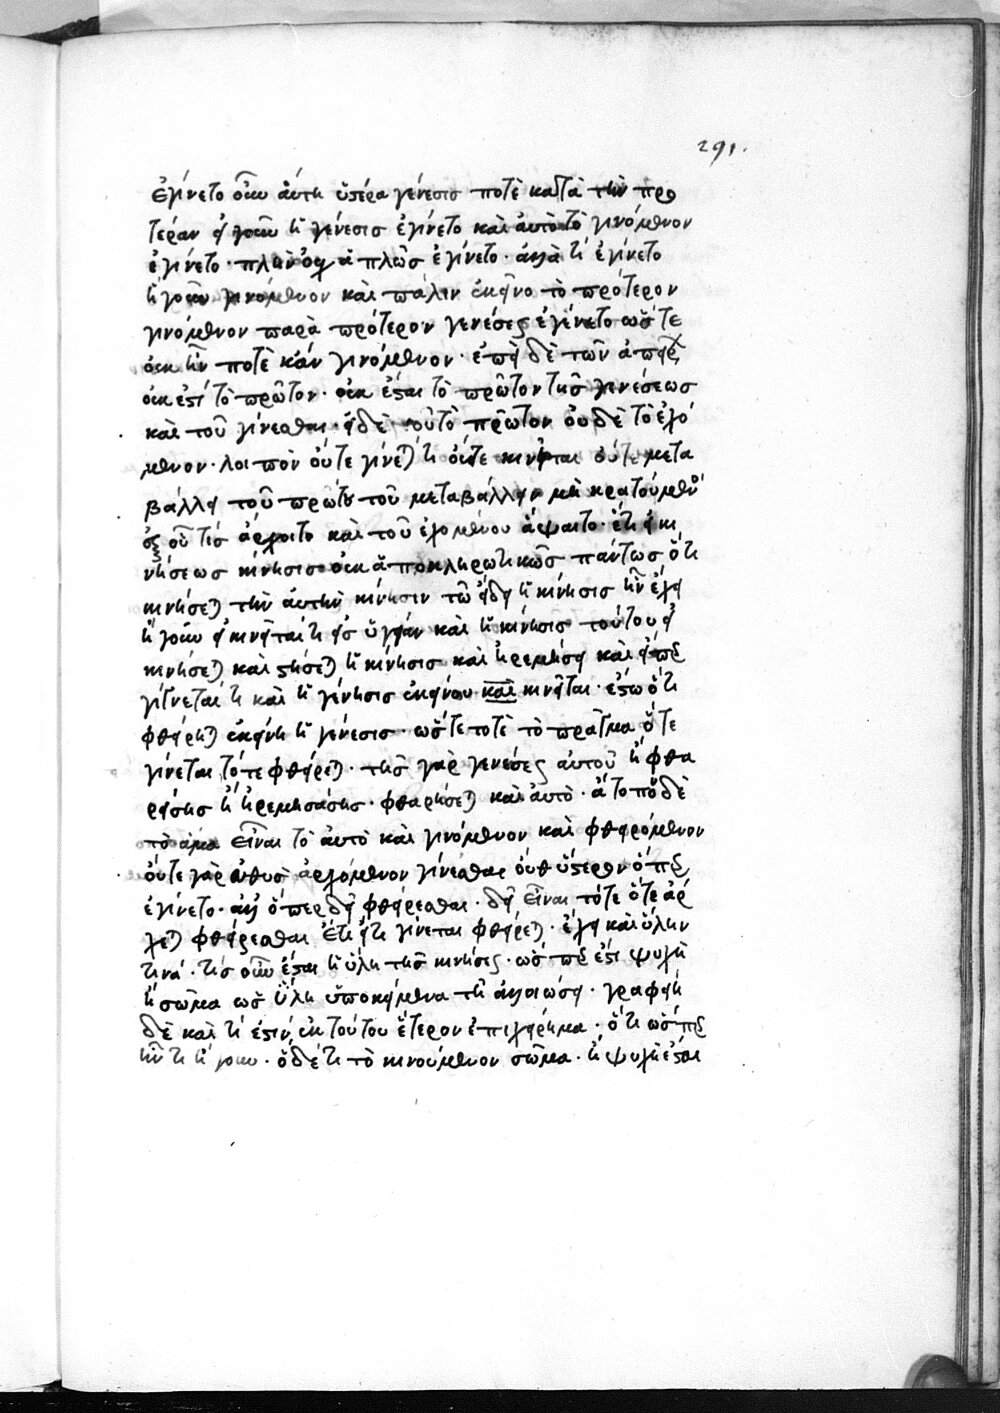 291.
ἐγίνετο οὖν αὕτη ὑστέρα γένεσις ποτὲ κατὰ τὴν προ
τέραν εἰ γοῦν ἡ γένεσις ἐγίνετο καὶ αὐτὸ τὸ γινόμενον
ἐγίνετο · πλὴν οὐχ ἁπλῶς ἐγίνετο · ἀλλὰ τὶ ἐγίνετο
γινόμενον καὶ πάλιν ἐκεῖνο τὸ πρότερον
γινόμενον παρὰ πρότερον γενέσεως ἐγίνετο ὥστε
οὐκ ἦν ποτὲ κἂν γινόμενον · ἐπεὶ δὲ τῶν ἀπείρων
οὐκ ἐστὶ τὸ πρῶτον · οὐκ ἔσται τὸ πρῶτον τῆς γενέσεως
καὶ τοῦ γίνεσθαι · εἰ δὲ οὐ τὸ πρῶτον οὐδὲ τὸ ἐχό
μενον · λοιπὸν οὔτε γίνεται τὶ οὔτε κινεῖται οὔτε μετα
βάλλει τοῦ πρώτου τοῦ μεταβάλλειν μὴ κρατουμένου
ἐξ οὗ τίς ἄρχοιτο καὶ τοῦ ἐχομένου ἅψαιτο · ἔτι εἰ κι
νήσεως κίνησις οὐκ ἀποκληρωτικῶς πάντως ὅτι
κινήσεται τὴν αὐτὴν κίνησιν τῷ εἴδει ἡ κίνησις ἣν ἔχει
ἡ γοῦν εἰ κινεῖταί τι εἰς ὑγείαν καὶ ἡ κίνησις τούτου εἰ
κινήσεται καὶ στήσεται ἡ κίνησις καὶ ἠρεμήσει καὶ εἴπερ
γίγνεταί τι καὶ ἡ γένησις ἐκείνου καὶ κινεῖται · ἔστω ὅτι
φθείρεται ἐκείνη ἡ γένεσις · ὥστε ποτὲ τὸ πρᾶγμα ὅτε
γίνεται τότε φθείρεται · τῆς γὰρ γενέσεως αὐτοῦ ἢ φθα
ρείσης ἢ ἠρεμησάσης · φθαρήσεται καὶ αὐτὸ · ἄτοπον δὲ
τὸ ἅμα εἶναι τὸ αὐτὸ καὶ γινόμενον καὶ φθειρόμενον
οὔτε γὰρ εὐθὺς ἀρχόμενον γίνεσθαι οὔθ ὕστερον ὅπερ
ἐγίνετο · ἀλλ ὅπερ δεῖ φθείρεσθαι · δεῖ εἶναι τότε ὅτε ἄρ
χεται φθείρεσθαι ἔτι εἴ τι γίνεται φθείρεται · ἔχει καὶ ὕλην
τινά · τίς οὖν ἔσται ἡ ὕλη τῆς κινήσεως · ὥσπερ ἐστὶ ψυχὴ
ἢ σῶμα ὡς ὕλη ὑποκείμενα τῇ ἀλλοιώσει · γράφει
δὲ καὶ τί ἐστιν, ἐκ τούτου ἕτερον ἐπιχείρημα · ὅτι ὥσπερ
ἦν τι ἢ γοῦν · ὅδέ τι τὸ κινούμενον σῶμα · ἢ ψυχὴ ἔσται